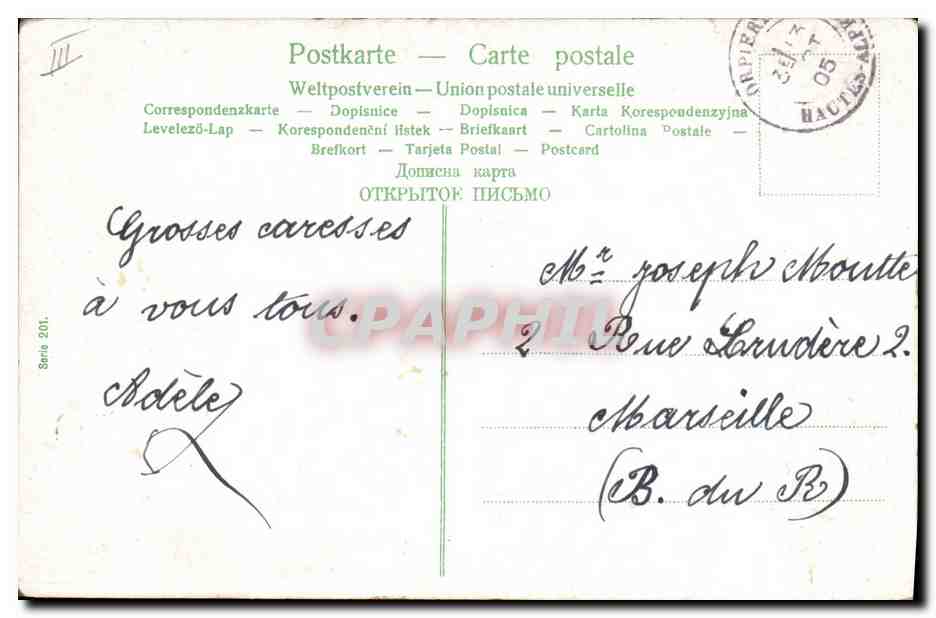 III
Postkarte — Carte postale
Weltpostverein — Union postale universelle
Correspondenzkarte — Dopisnice — Dopisnica — Karta Korespondenzyjna
Levelező-Lap — Korespondenční listek — Briefkaart — Cartolina Postale —
Brefkort — Tarjeta Postal — Postcard
Дописна карта
ОТКРЫТОЕ ПИСЬМО
ORPIER
05
HAUTES-ALP
Grosses caresses
à vous tous.
Adèle
Mr Joseph Moutte
2 Rue Lrudère 2.
Marseille
(B. du R)
Serie 201.
CPAPHIL